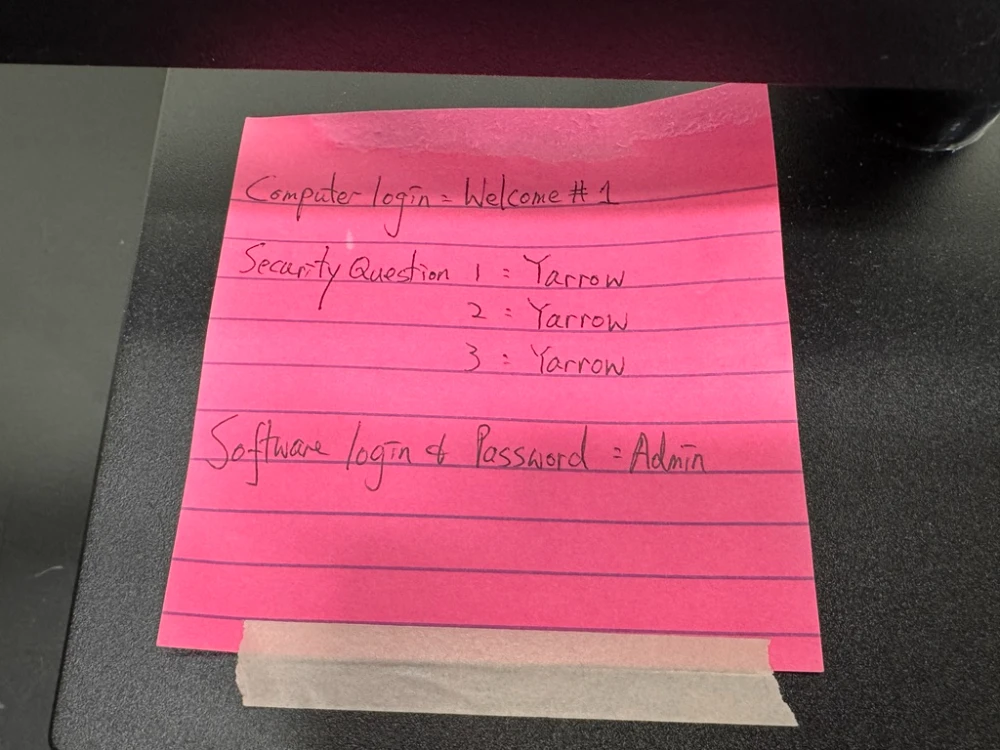 Computer login = Welcome # 1
Security Question 1 : Yarrow
2 : Yarrow
3 : Yarrow
Software login & Password = Admin